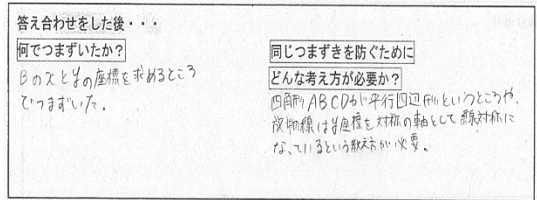 答え合わせをした後・・・
何でつまずいたか?
Bのxとyの座標を求めるところ
でつまずいた。
同じつまずきを防ぐために
どんな考え方が必要か?
四角形ABCDが平行四辺形というところや、
放物線はy座標を対称の軸として線対称に
なっているという教え方が必要。